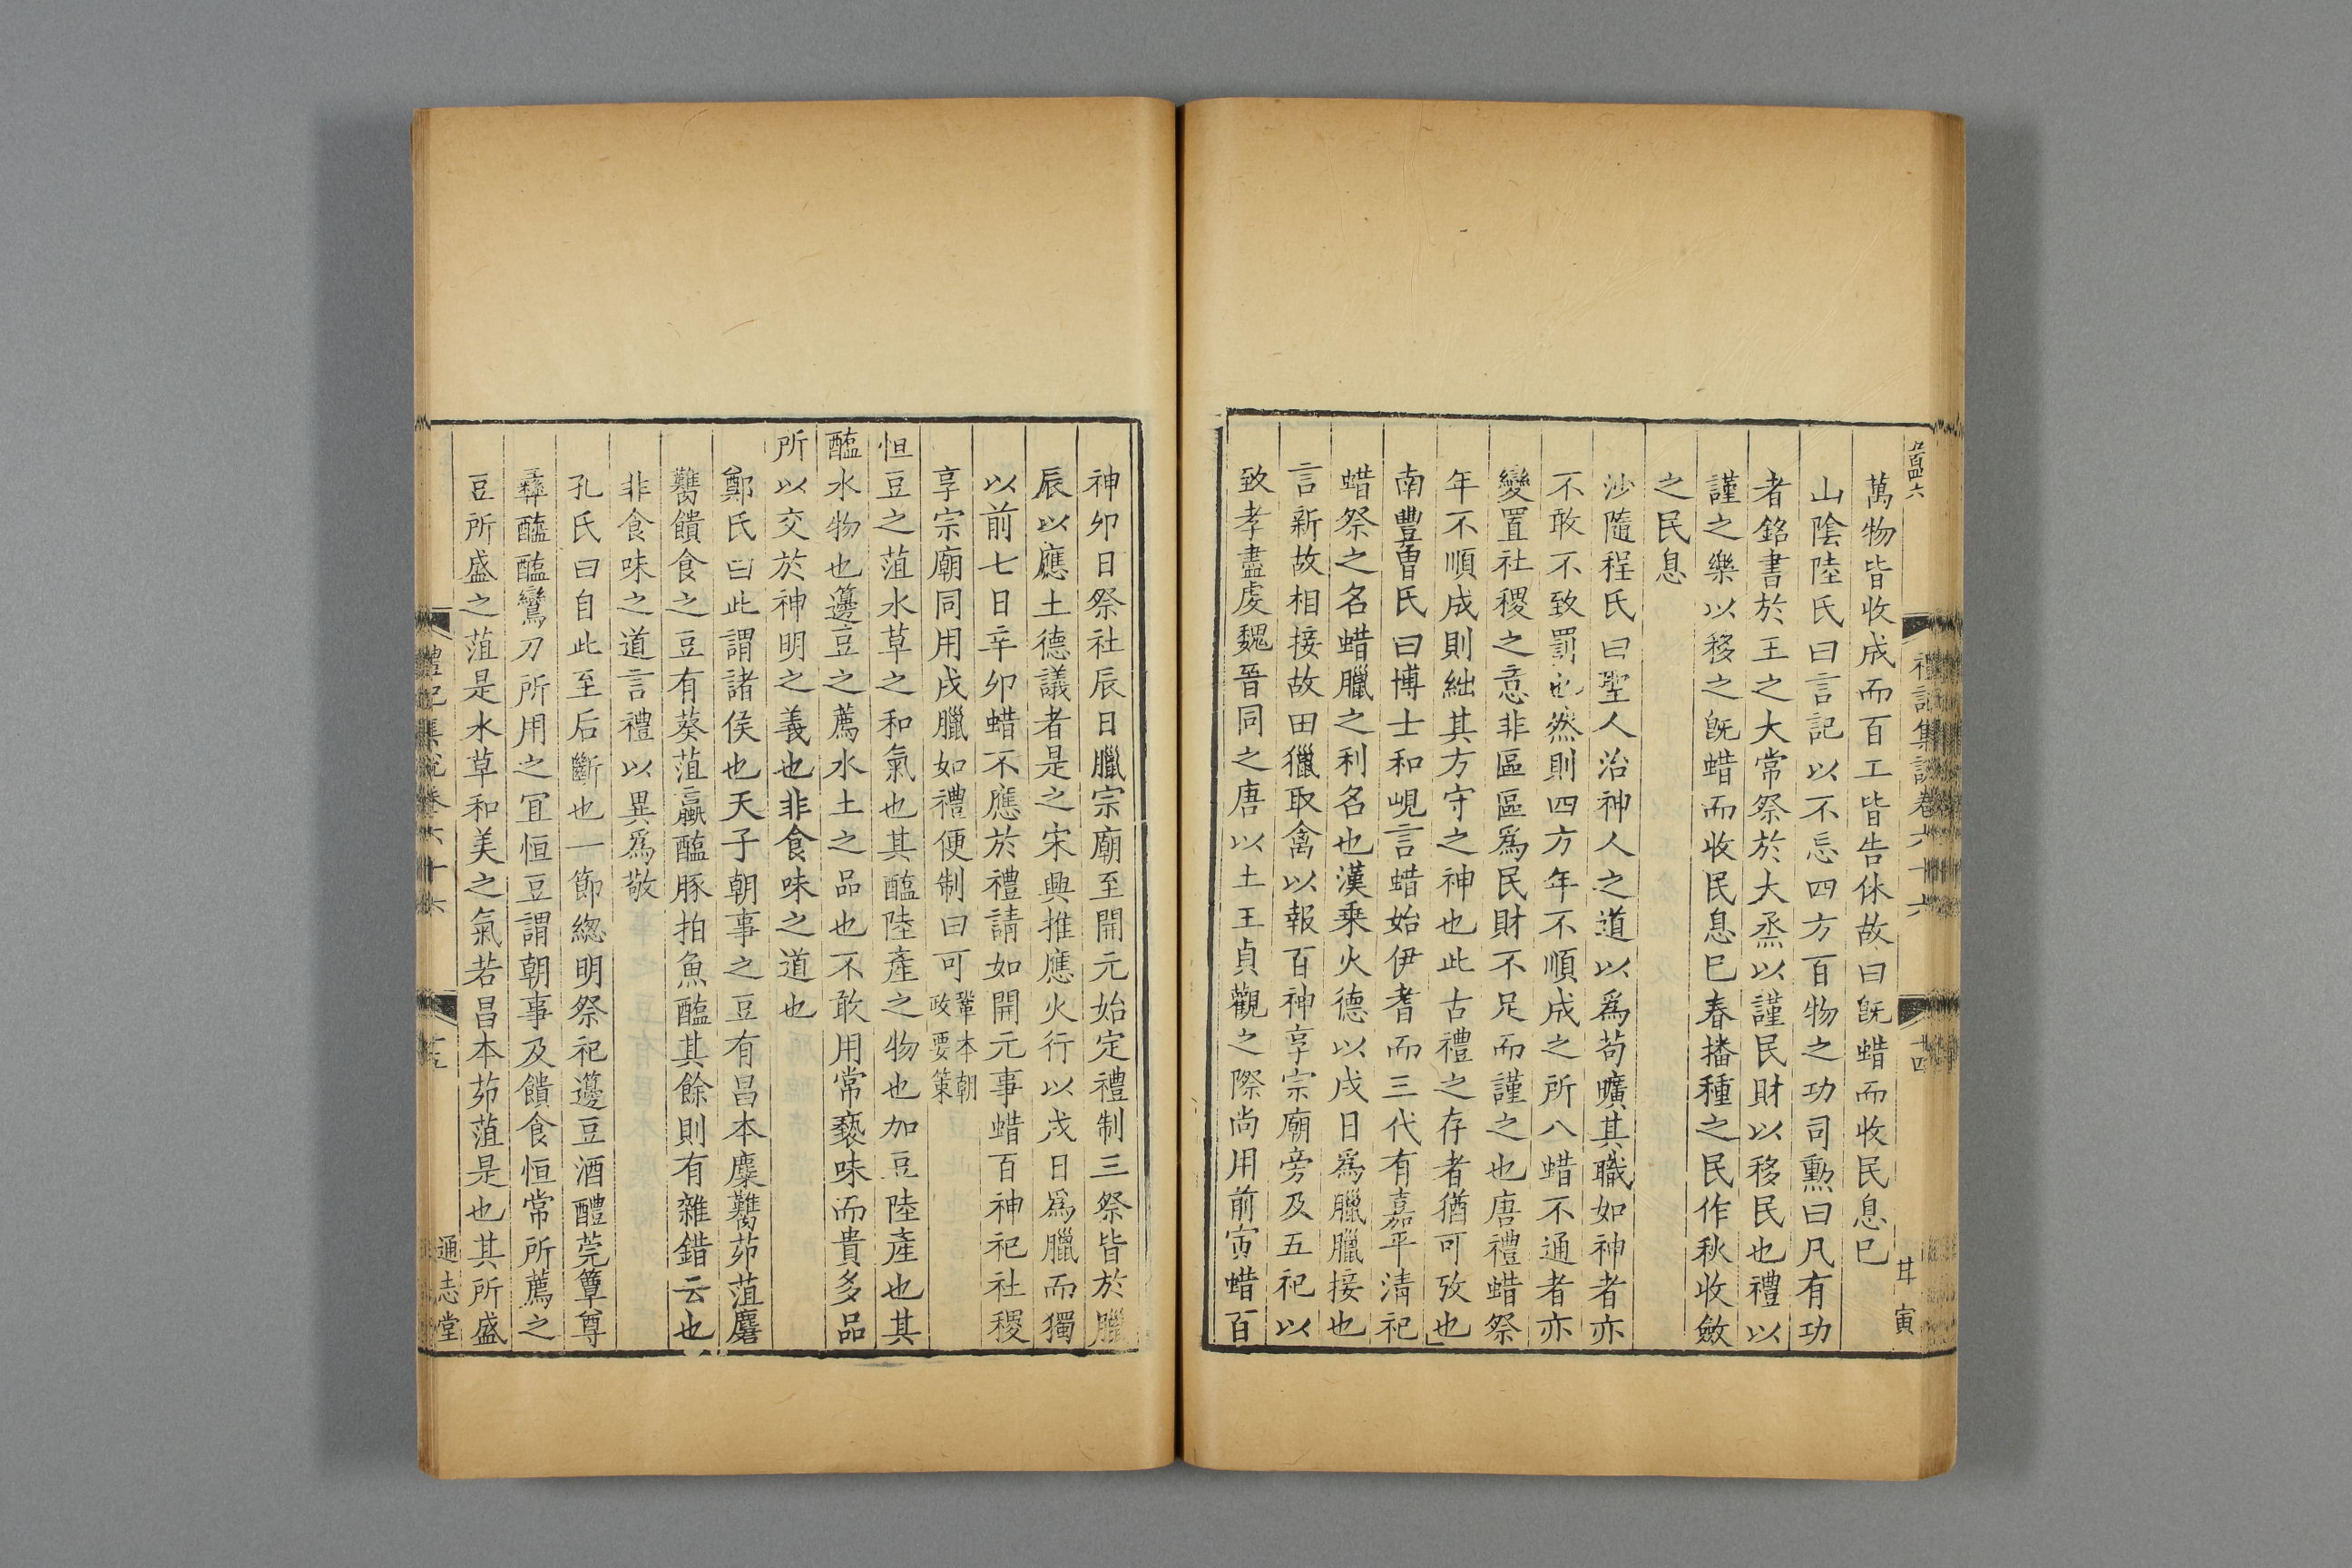 萬物皆收成而百工皆告休故曰旣蜡而收民息已
山陰陸氏曰言記以不忘四方百物之功司勲曰凡有功
者銘書於王之大常祭於大烝以謹民財以移民也禮以
謹之樂以移之旣蜡而收民息已春播種之民作秋收斂
之民息
沙隨程氏曰聖人治神人之道以爲苟曠其職如神者亦
不敢不致罰也然則四方年不順成之所八蜡不通者亦
變置社稷之意非區區爲民財不足而謹之也唐禮蜡祭
年不順成則絀其方守之神也此古禮之存者猶可攷也
南豐曾氏曰博士和峴言蜡始伊耆而三代有嘉平淸祀
蜡祭之名蜡臘之利名也漢乘火德以戌日爲臘臘接也
言新故相接故田獵取禽以報百神享宗廟旁及五祀以
致孝盡虔魏晉同之唐以土王貞觀之際尚用前寅蜡百
禮記集說卷六十六
十四
甘寅
神卯日祭社辰日臘宗廟至開元始定禮制三祭皆於臘
辰以應土德議者是之宋興推應火行以戌日爲臘而獨
以前七日辛卯蜡不應於禮請如開元事蜡百神祀社稷
享宗廟同用戌臘如禮便制曰可鞏本朝政要策
恒豆之菹水草之和氣也其醢陸產之物也加豆陸產也其
醢水物也籩豆之薦水土之品也不敢用常褻味而貴多品
所以交於神明之義也非食味之道也
鄭氏曰此謂諸侯也天子朝事之豆有昌本麋臡茆菹麏
臡饋食之豆有葵菹蠃醢豚拍魚醢其餘則有雜錯云也
非食味之道言禮以異爲敬
孔氏曰自此至后斷也一節緫明祭祀籩豆酒醴莞簟尊
彝醯醢鸞刀所用之宜恒豆謂朝事及饋食恒常所薦之
豆所盛之菹是水草和美之氣若昌本茆菹是也其所盛
禮記集說卷六十六
十五
通志堂